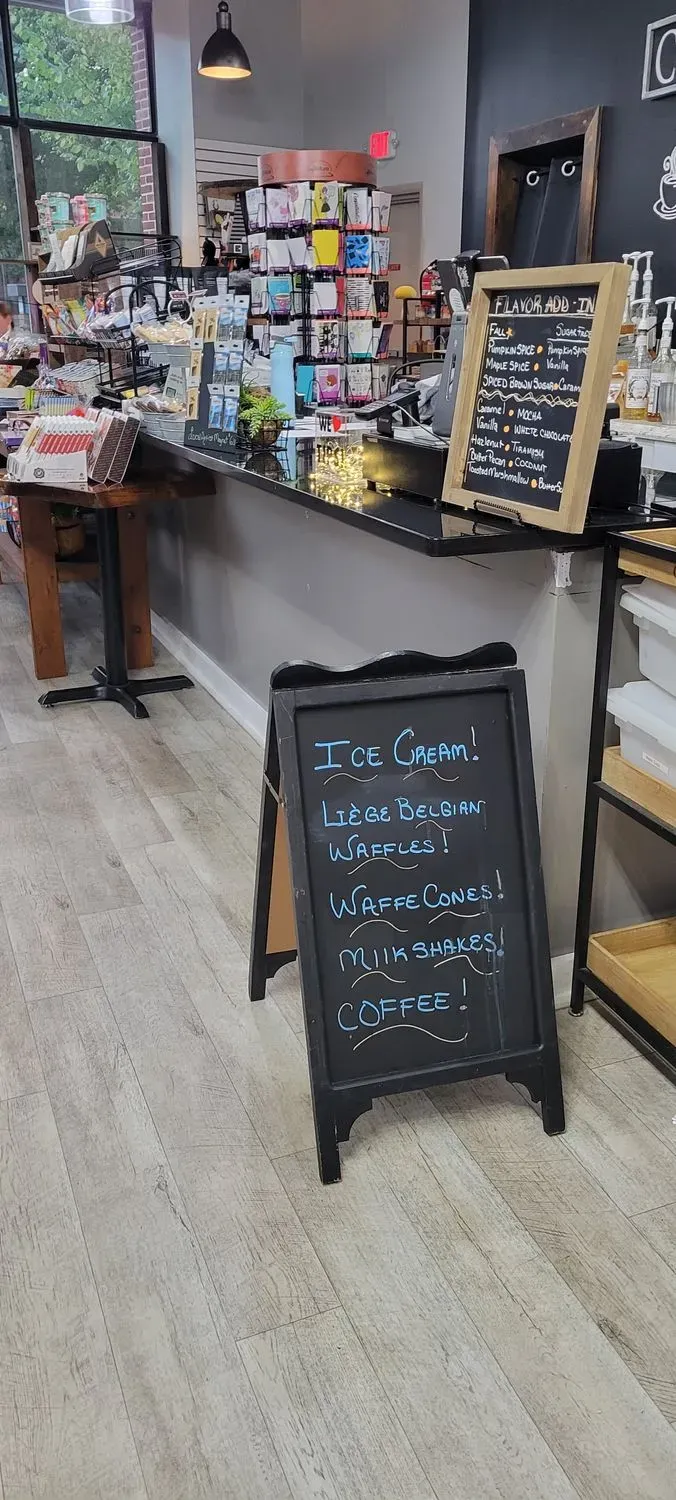 FLAVOR ADD-IN
FALL SUGAR FREE
PUMPKIN SPICE PUMPKIN SPICE
MAPLE SPICE Vanilla
SPICED BROWN SUGAR Caram
Caramel MOCHA
Vanilla WHITE CHOCOLATE
Hazelnut TIRAMISU
Butter Pecan COCONUT
Toasted Marshmallow Butter
ICE CREAM!
LIÈGE BELGIAN
WAFFLES!
WAFFE CONES!
MILKSHAKES!
COFFEE!